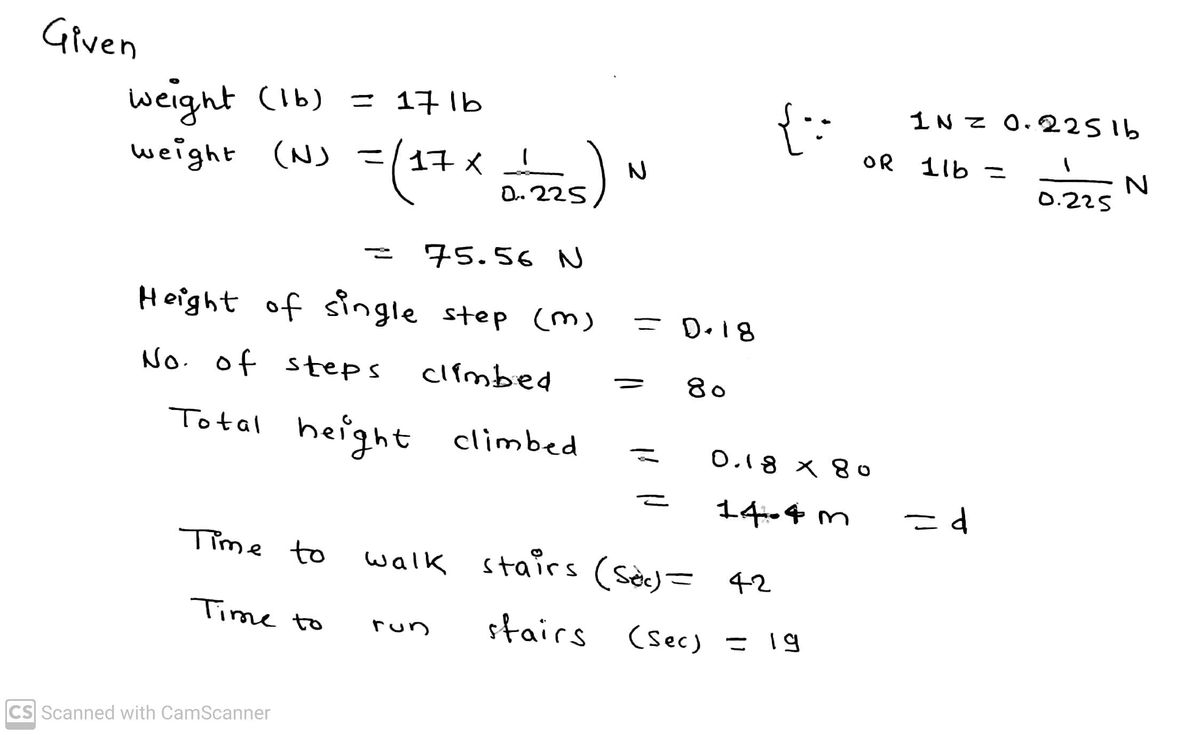 Given
weight (lb) = 17 lb
{∵ 1N = 0.225 lb
weight (N) = (17 × 1/0.225) N
OR 1lb = 1/0.225 N
= 75.56 N
Height of single step (m) = 0.18
No. of steps climbed = 80
Total height climbed = 0.18 × 80
= 14.4 m = d
Time to walk stairs (Sec) = 42
Time to run stairs (Sec) = 19
CS Scanned with CamScanner